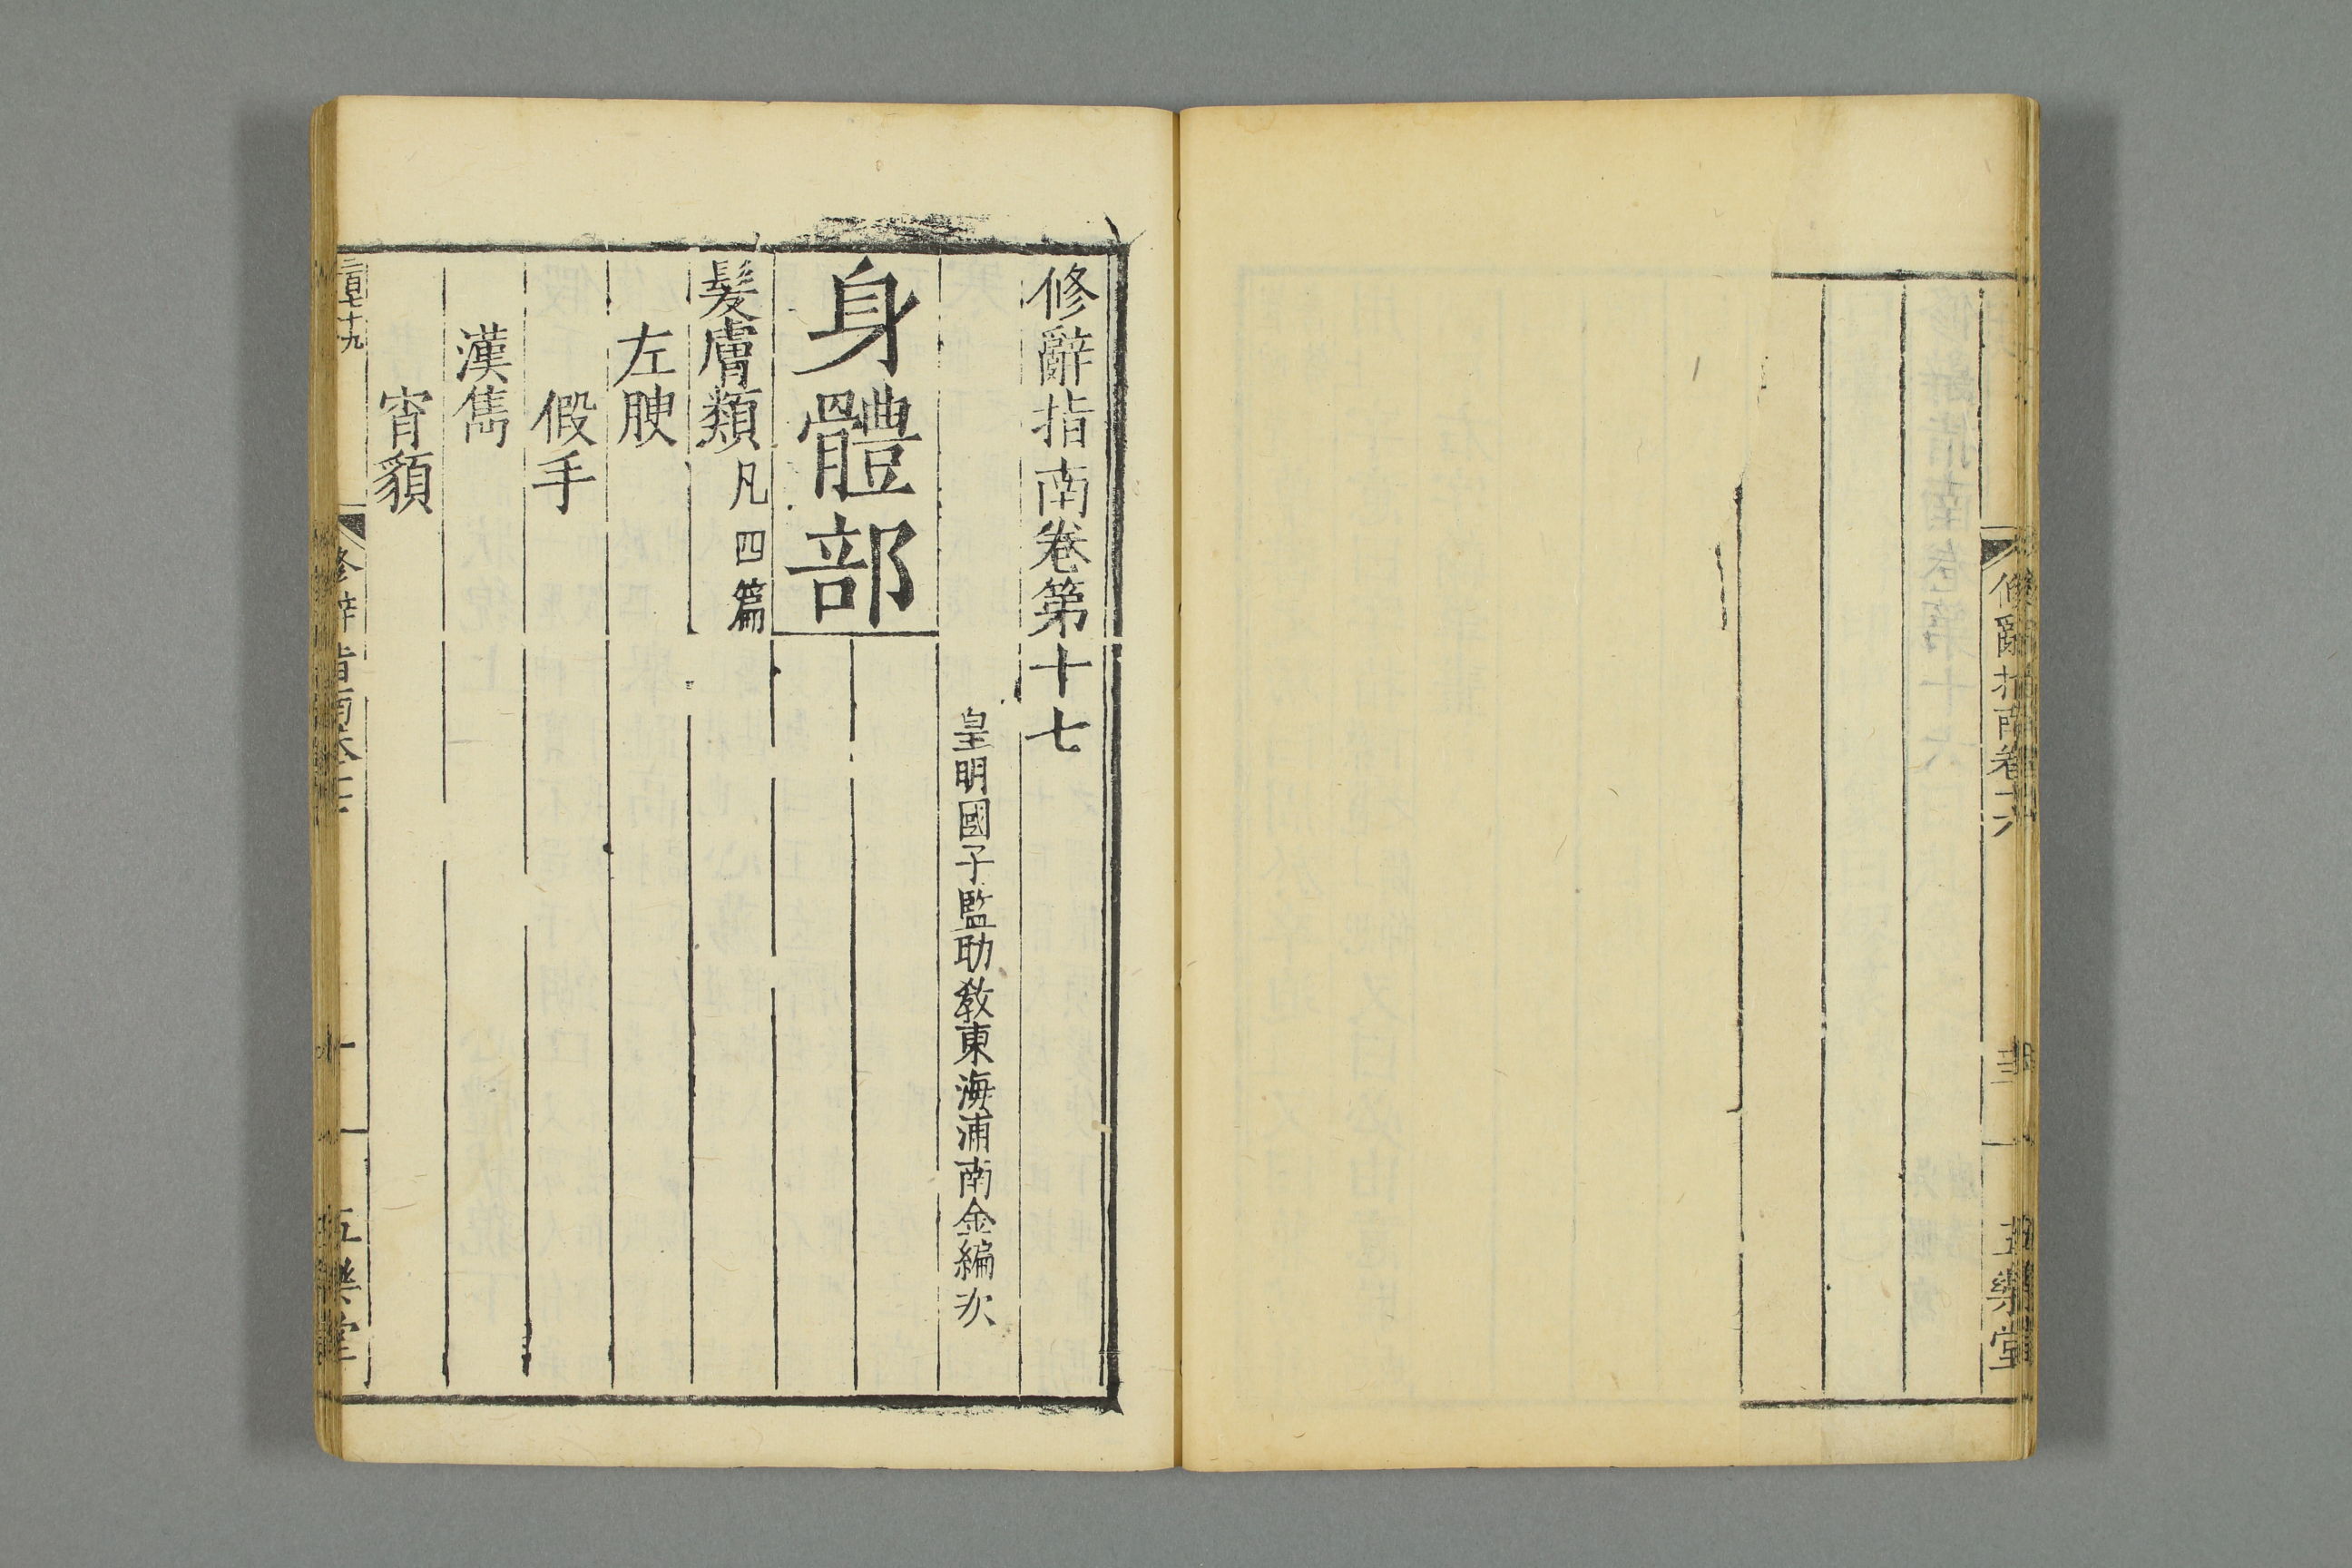 修辭指南卷十六
五樂堂
修辭指南卷第十七
皇明國子監助教東海浦南金編次
身體部
髮膚類凡四篇
左腴
假手
漢雋
宵貌
二百七十九
修辭指南卷十七
五樂堂